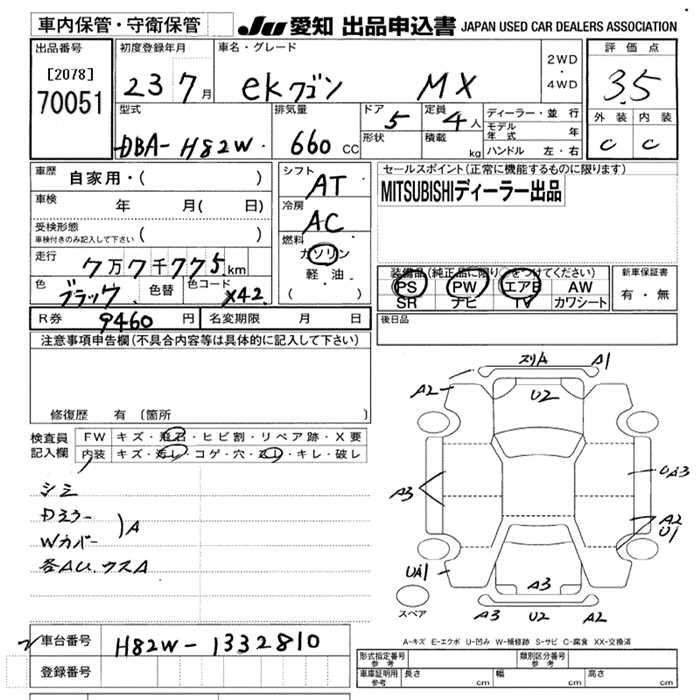 車内保管・守衛保管
JU 愛知 出品申込書 JAPAN USED CAR DEALERS ASSOCIATION
出品番号
[2078]
70051
初度登録年月
23 7月
車名・グレード
ekワゴン MX
2WD
・
4WD
評価点
3.5
外装 内装
C C
型式
DBA- H82W
排気量
660 CC
ドア 5
形状
定員 4人
積載 kg
ディーラー・並行
モデル年式 年
ハンドル 左・右
車歴 自家用・( )
車検 年 月( 日)
受検形態
車検付きのみ記入して下さい ( )
走行 7万7千775km
色 ブラック 色替 色コード X42
シフト AT
冷房 AC
燃料 ガソリン
軽・油
( )
セールスポイント(正常に機能するものに限ります)
MITSUBISHIディーラー出品
装備品(純正品に限り○をつけてください)
PS PW エアB AW
SR ナビ TV カワシート
新車保証書
有・無
R券 9460円 名変期限 月 日
後日品
注意事項申告欄(不具合内容等は具体的に記入して下さい)
修復歴 有(箇所
検査員記入欄
FW キズ・飛石・ヒビ割・リペア跡・X要
内装 キズ・汚レ・コゲ・穴・スレ・キレ・破レ
シミ
Dミラー
Wカバー
)A
各AU.ウスA
スリA A1
A2
U2
A3
UA3
A2
U1
UA1
A3
スペア
A3 U2 A2
A-キズ E-エクボ U-凹み W-補修跡 S-サビ C-腐食 XX-交換済
車台番号 H82W-1332810
登録番号
形式指定番号 参考
類別区分番号 参考
車庫証明用 参考 長さ cm 幅 cm 高さ cm